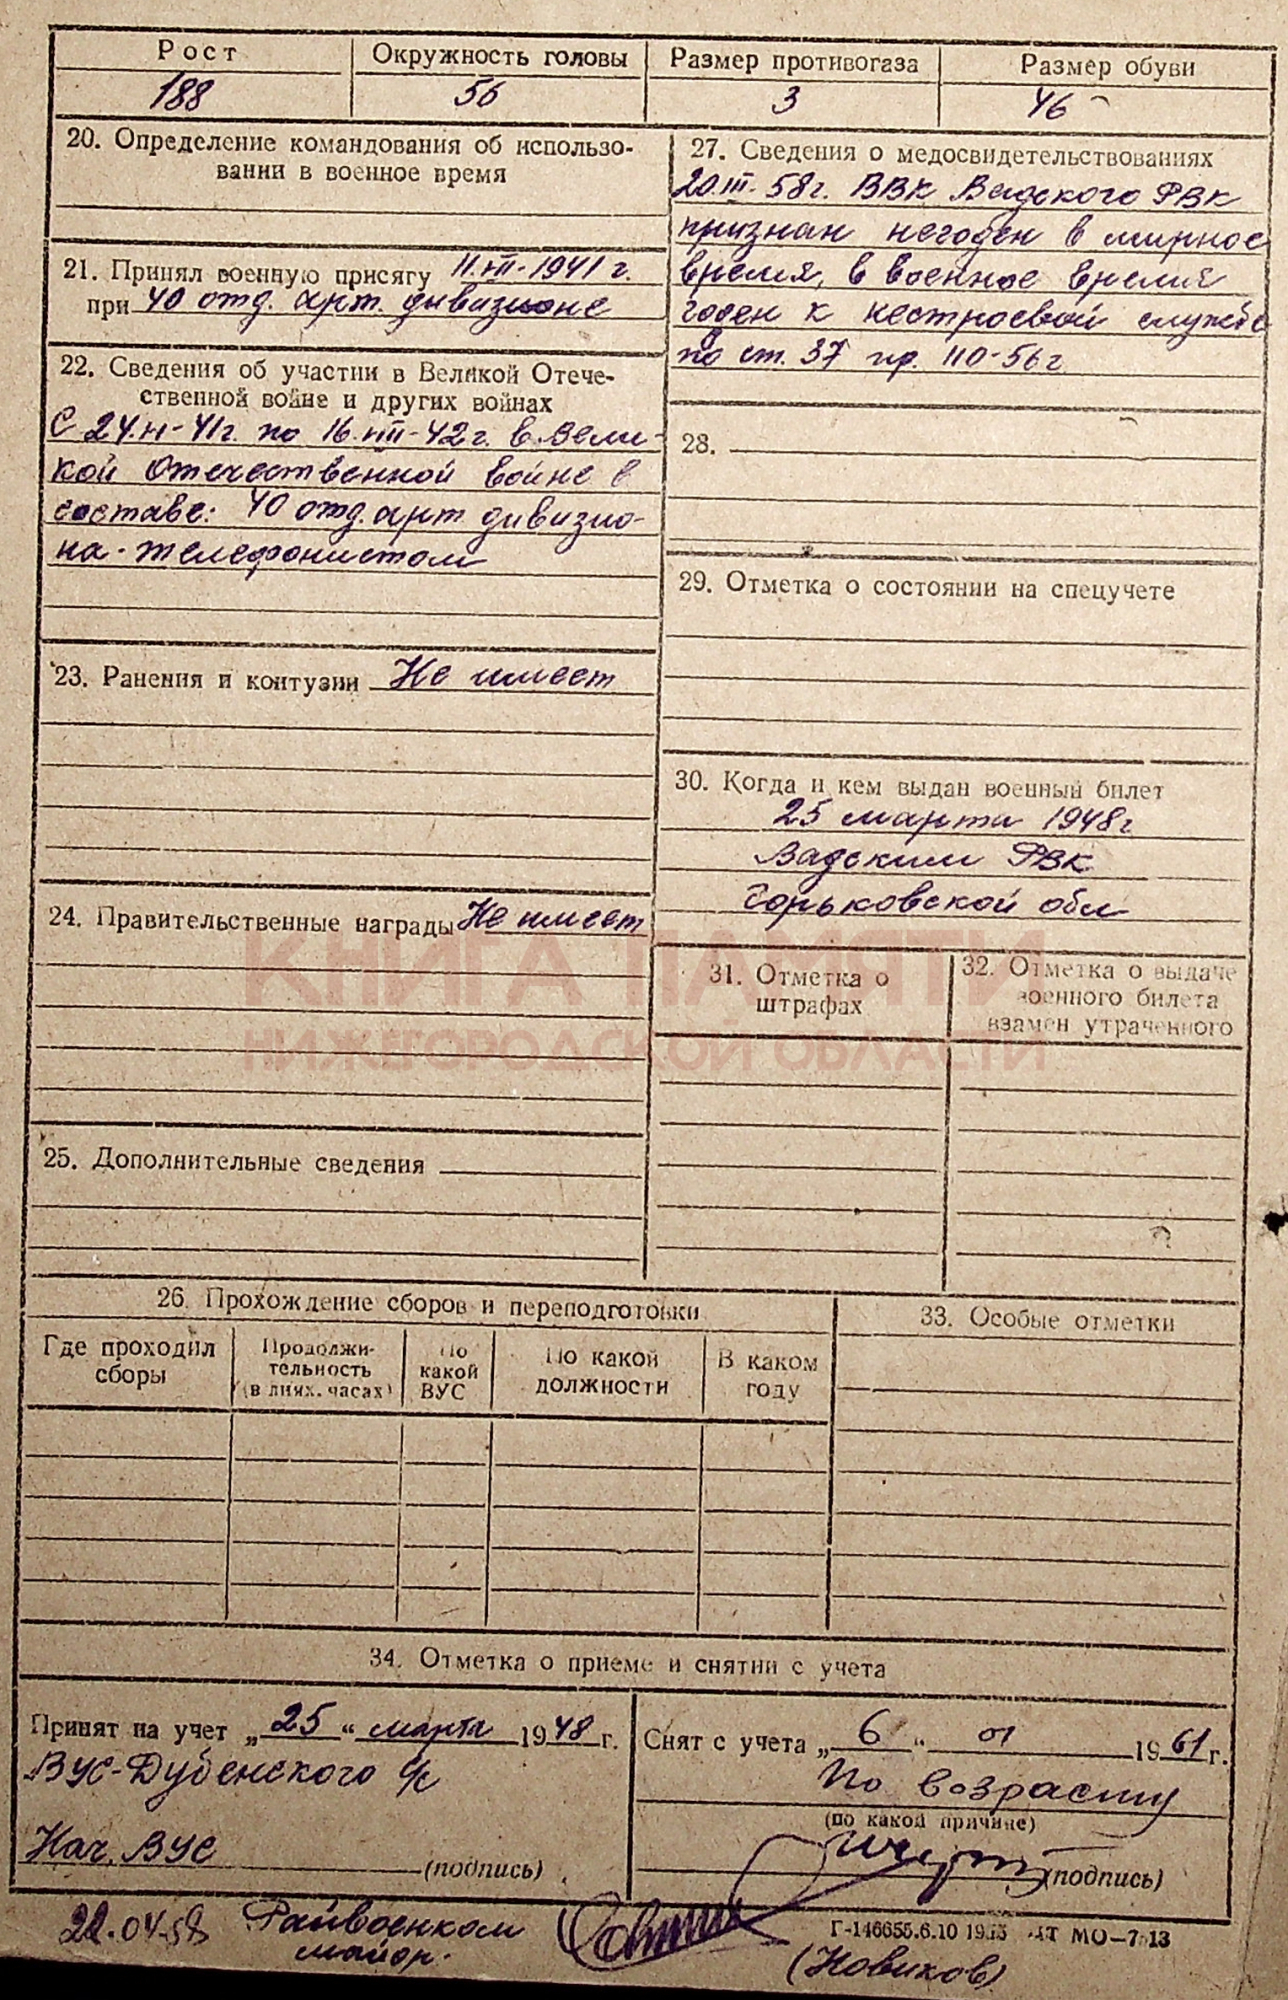 Рост Окружность головы Размер противогаза Размер обуви
188 56 3 46
20. Определение командования об использо-
вании в военное время
21. Принял военную присягу 11.VIII-1941 г.
при 40 отд. арт. дивизионе
22. Сведения об участии в Великой Отече-
ственной войне и других войнах
С 24. -41г. по 16. -42г. в Вели-
кой Отечественной войне в
составе: 40 отд. арт дивизио-
на - телефонистом
23. Ранения и контузии Не имеет
24. Правительственные награды Не имеет
25. Дополнительные сведения
27. Сведения о медосвидетельствованиях
20.III-58г. ВВК Вадского РВК
признан негоден в мирное
время, в военное время
годен к нестроевой службе
по ст. 37 пр. 110-56г
28.
29. Отметка о состоянии на спецучете
30. Когда и кем выдан военный билет
25 марта 1948г
Вадским РВК
Горьковской обл
31. Отметка о
штрафах
32. Отметка о выдаче
военного билета
взамен утраченного
КНИГА ПАМЯТИ
НИЖЕГОРОДСКОЙ ОБЛАСТИ
26. Прохождение сборов и переподготовки
Где проходил
сборы
Продолжи-
тельность
(в днях, часах)
По
какой
ВУС
По какой
должности
В каком
году
33. Особые отметки
34. Отметка о приеме и снятии с учета
Принят на учет „25" марта 1948 г.
ВУС-Дубенского с/с
Нач. ВУС (подпись)
Снят с учета „6" 01 1961 г.
По возрасту
(по какой причине)
(подпись)
22.04.58 Райвоенком
майор.
(Новиков)
Г-146655.6.10 МО-7 13